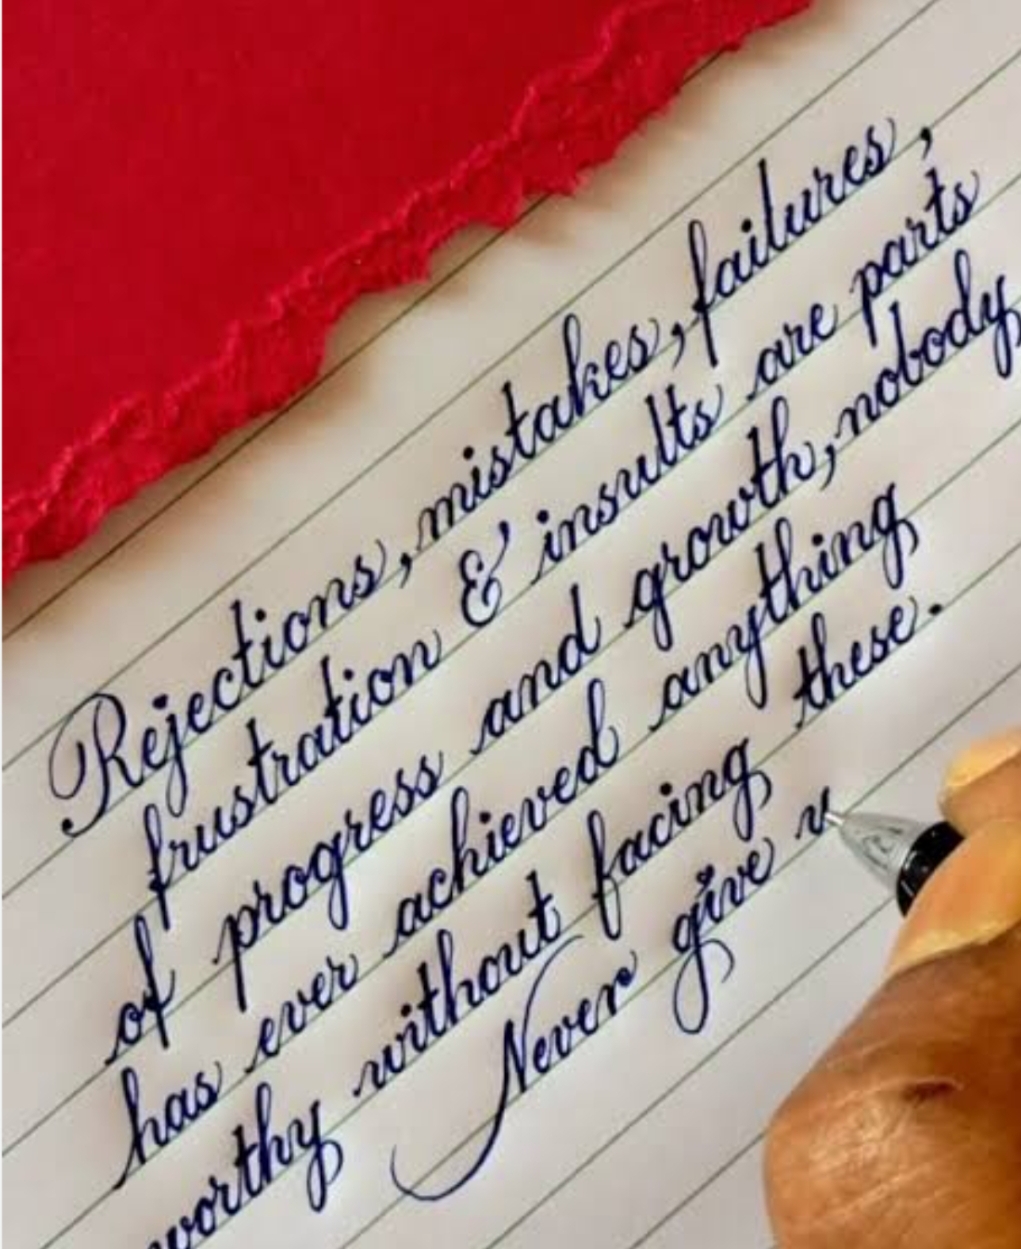 Rejections, mistakes, failures,
frustration & insults are parts
of progress and growth, nobody
has ever achieved anything
worthy without facing these.
Never give u